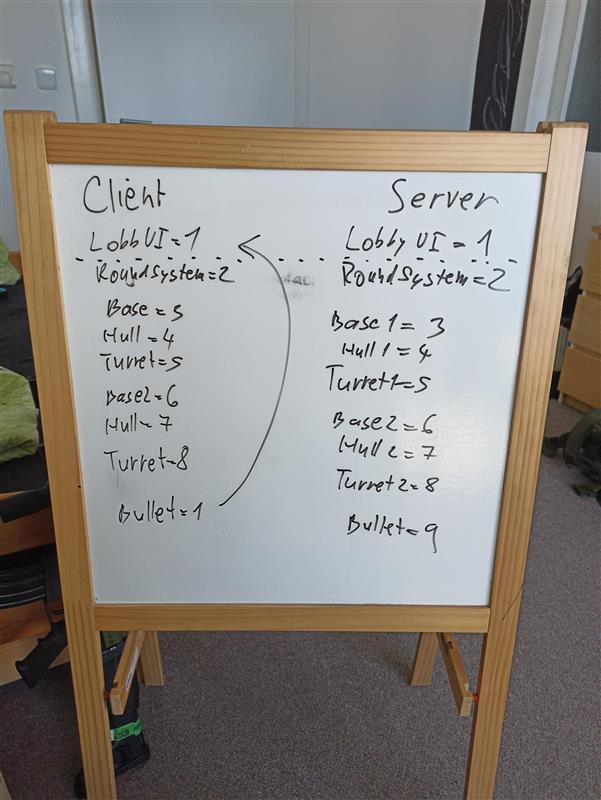 Client
LobbUI=1
RoundSystem=2
Base=5
Hull=4
Turret=5
Base2=6
Hull=7
Turret=8
Bullet=1
Server
Lobby UI=1
RoundSystem=2
Base1=3
Hull1=4
Turret1=5
Base2=6
Hull2=7
Turret2=8
Bullet=9